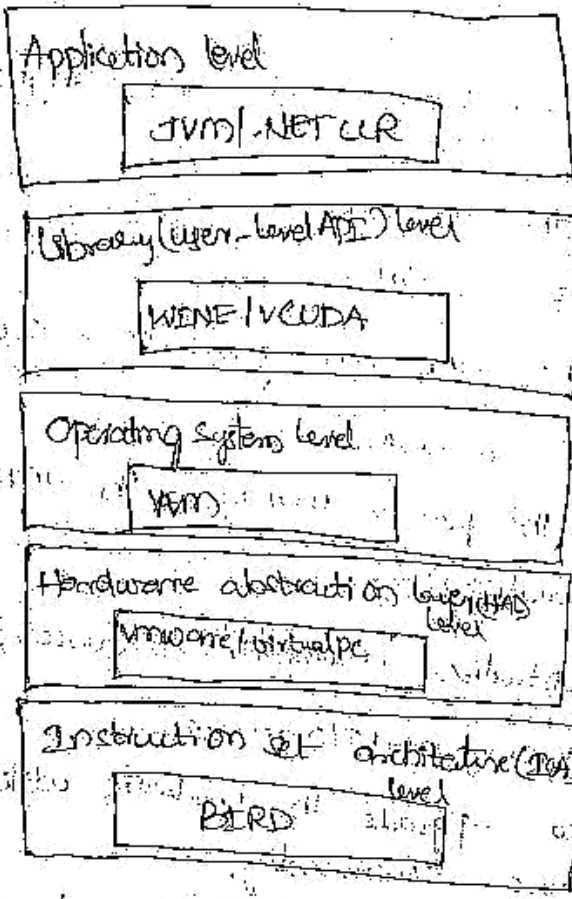 Application level
JVM/.NET CLR
Library (user-level API) level
WINE/vCUDA
Operating system Level
Hardware abstraction layer (HAL)
Level
vmware/virtualpc
Instruction set architecture (ISA)
level
BIRD